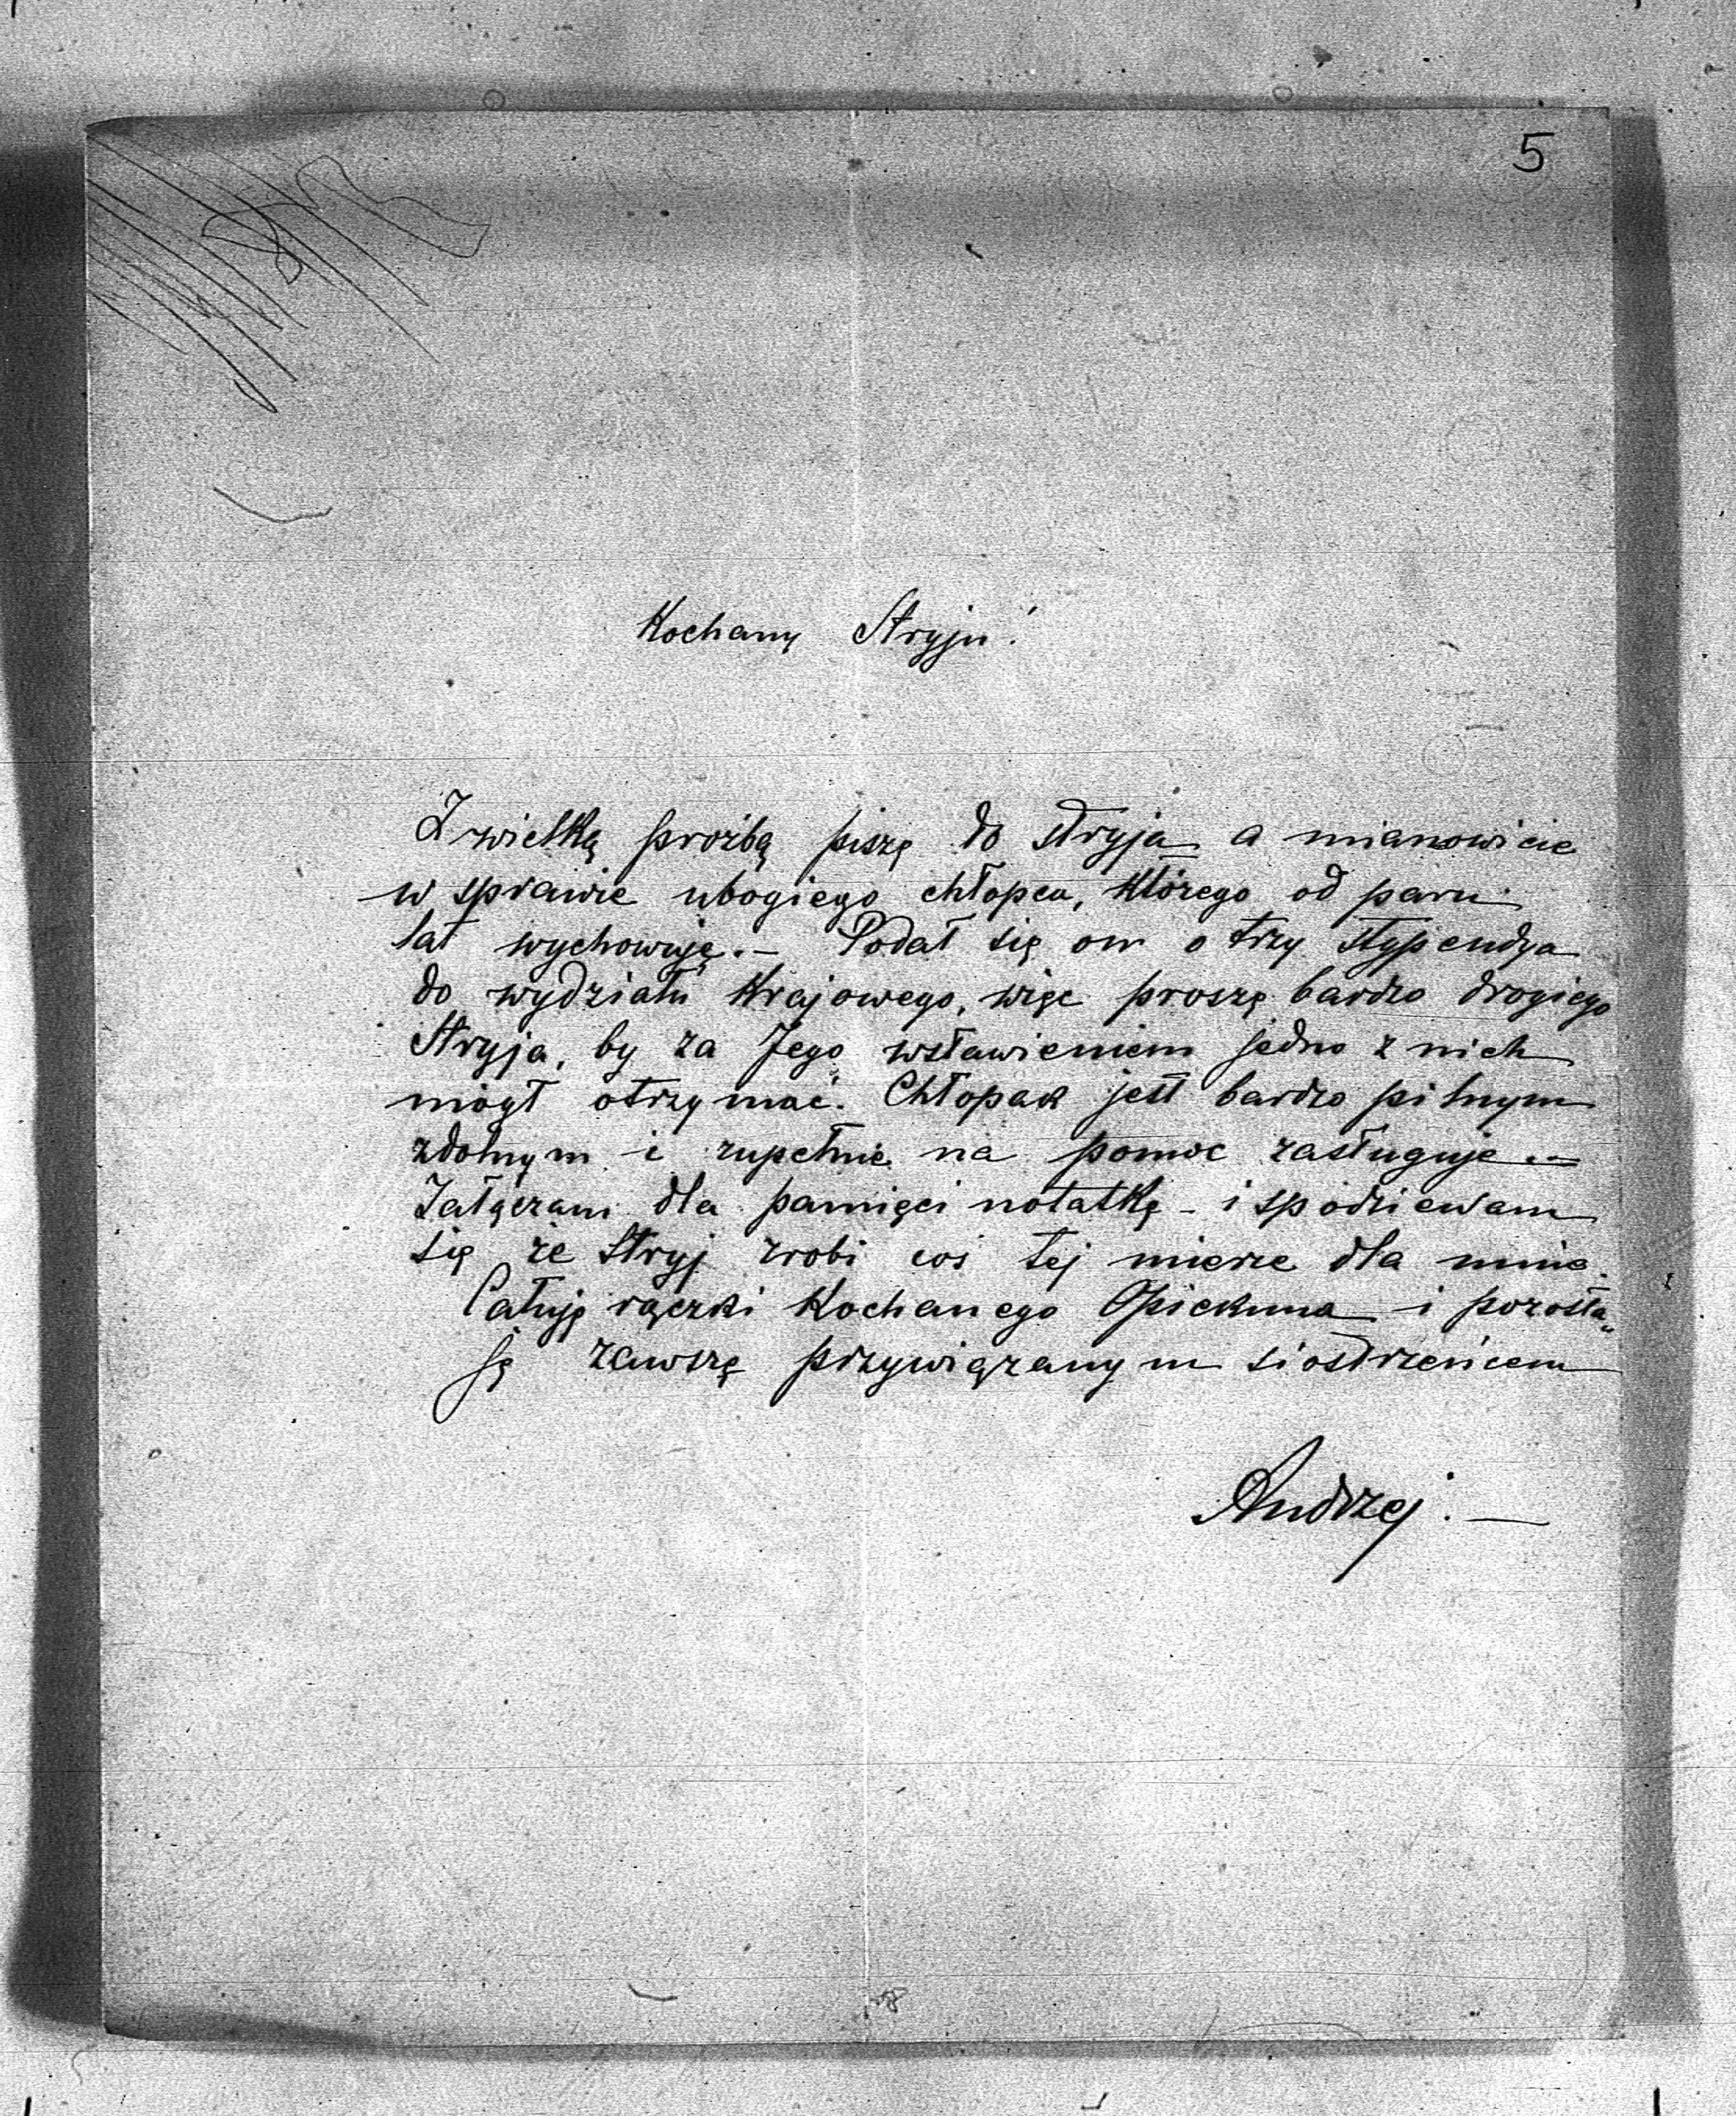 5
Kochany Stryju!
Z wielką prożbą piszę do stryja a mianowicie
w sprawie ubogiego chłopca, którego od paru
lat wychowuję.– Podał się on o trzy stypendya
do wydziału Krajowego, więc proszę bardzo drogiego
Stryja, by za Jego wstawieniem jedno z nich
mógł otrzymać. Chłopak jest bardzo pilnym
zdolnym i zupełnie na pomoc zasługuje.–
Załączam dla pamięci notatkę – i spodziewam
się że Stryj zrobi coś tej mierze dla mnie.
Całuję rączki Kochanego Opiekuna i pozosta„
ję zawszę przywiązanym siostrzeńcem
Andrzej.–